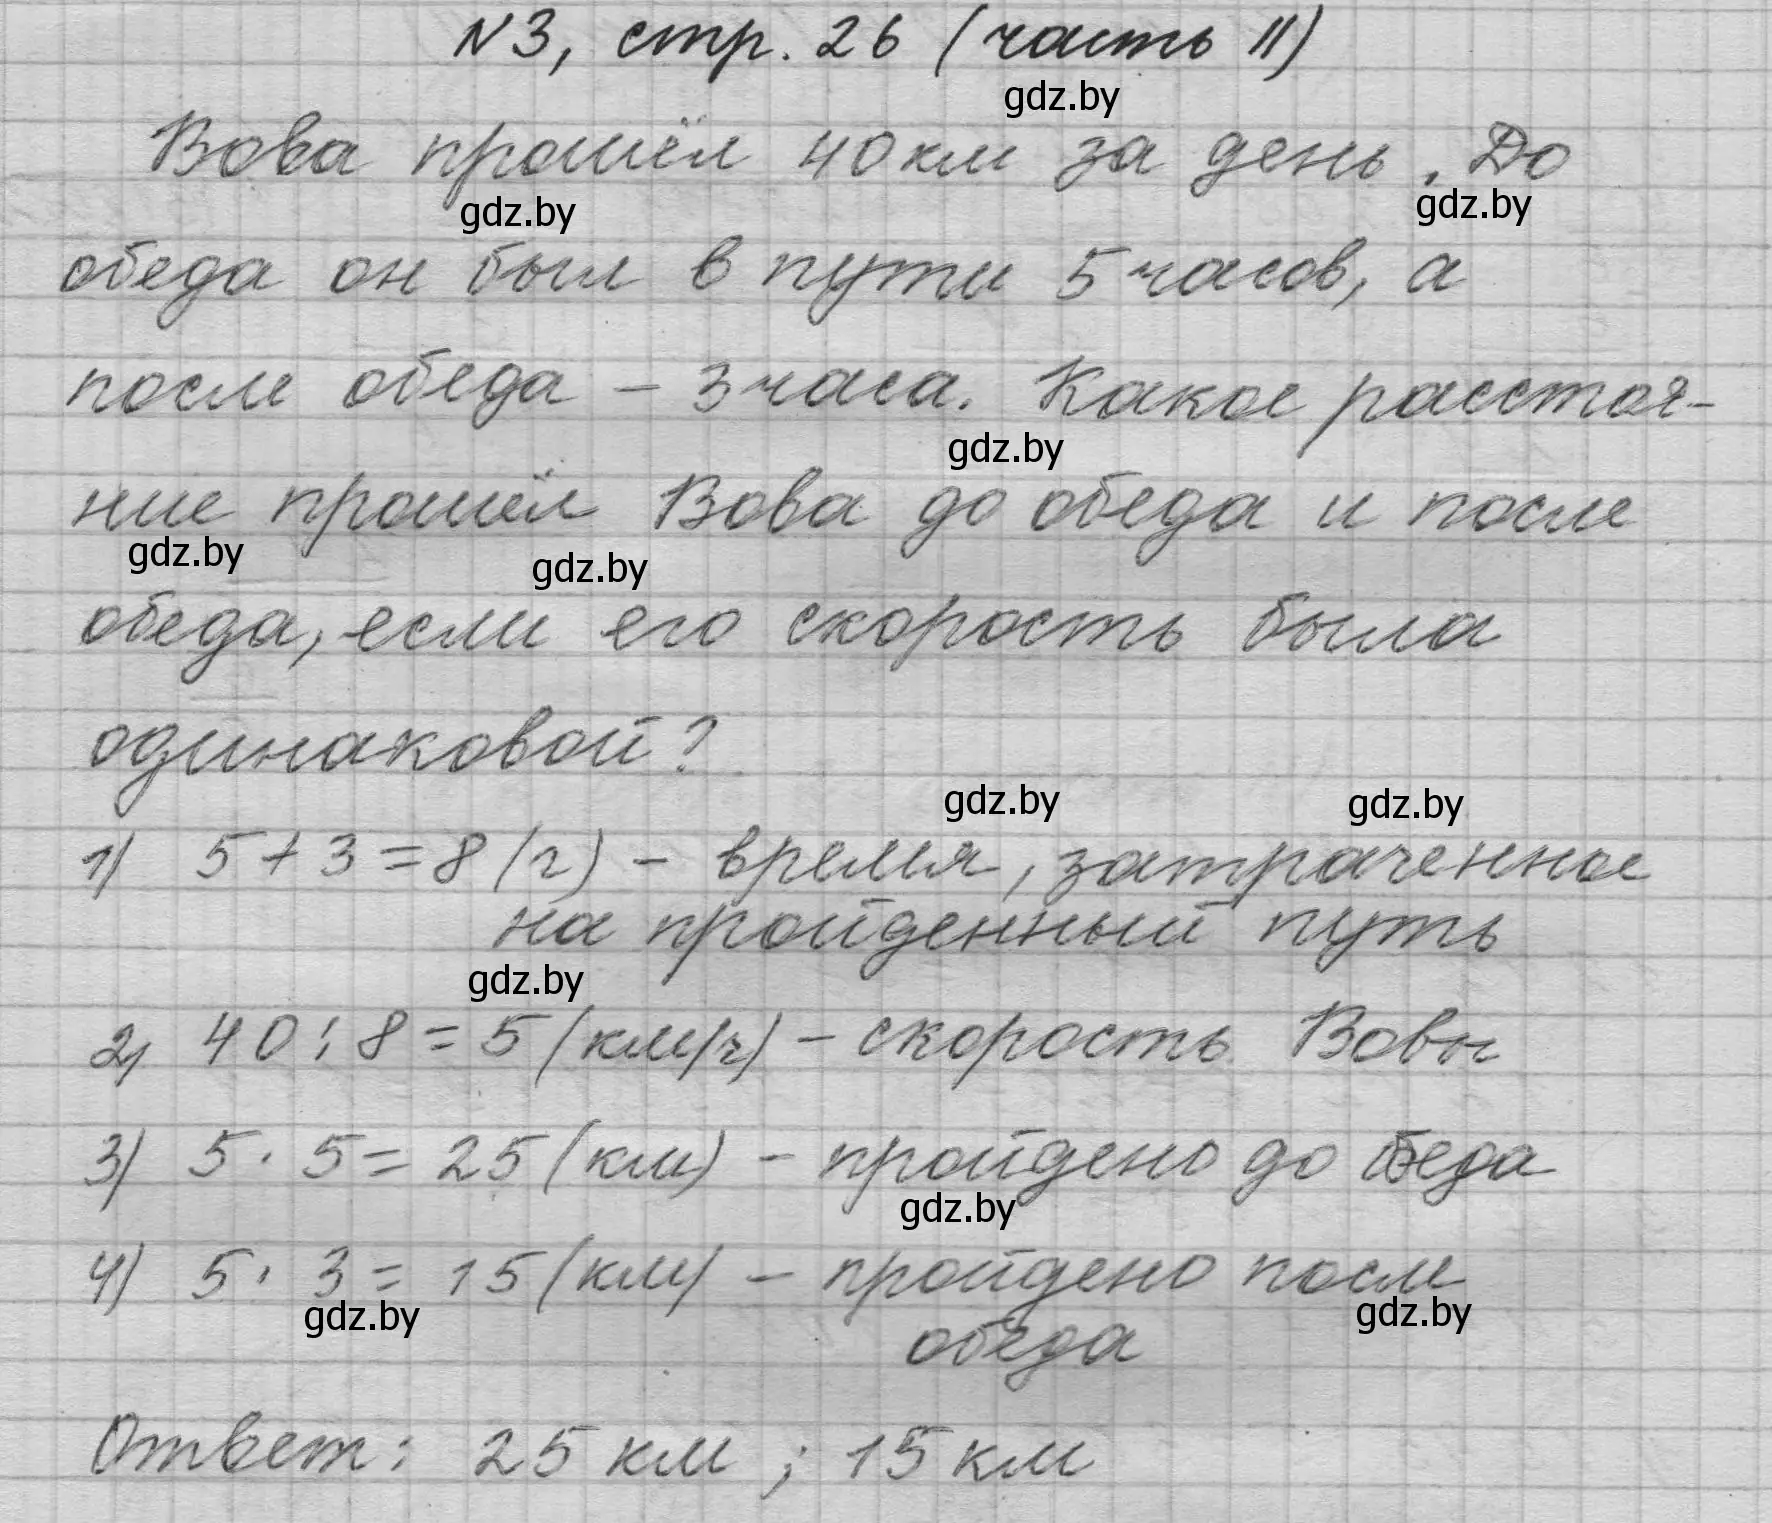 №3, стр. 26 (часть II)
gdz.by
Вова прошёл 40 км за день. До
gdz.by gdz.by
обеда он был в пути 5 часов, а
после обеда – 3 часа. Какое расстоя-
gdz.by
ние прошёл Вова до обеда и после
gdz.by gdz.by
обеда, если его скорость была
одинаковой?
gdz.by gdz.by
1) 5 + 3 = 8 (ч) – время, затраченное
на пройденный путь
gdz.by
2) 40 : 8 = 5 (км/ч) – скорость Вовы
3) 5 · 5 = 25 (км) – пройдено до обеда
gdz.by
4) 5 · 3 = 15 (км) – пройдено после
gdz.by gdz.by
обеда
Ответ: 25 км ; 15 км